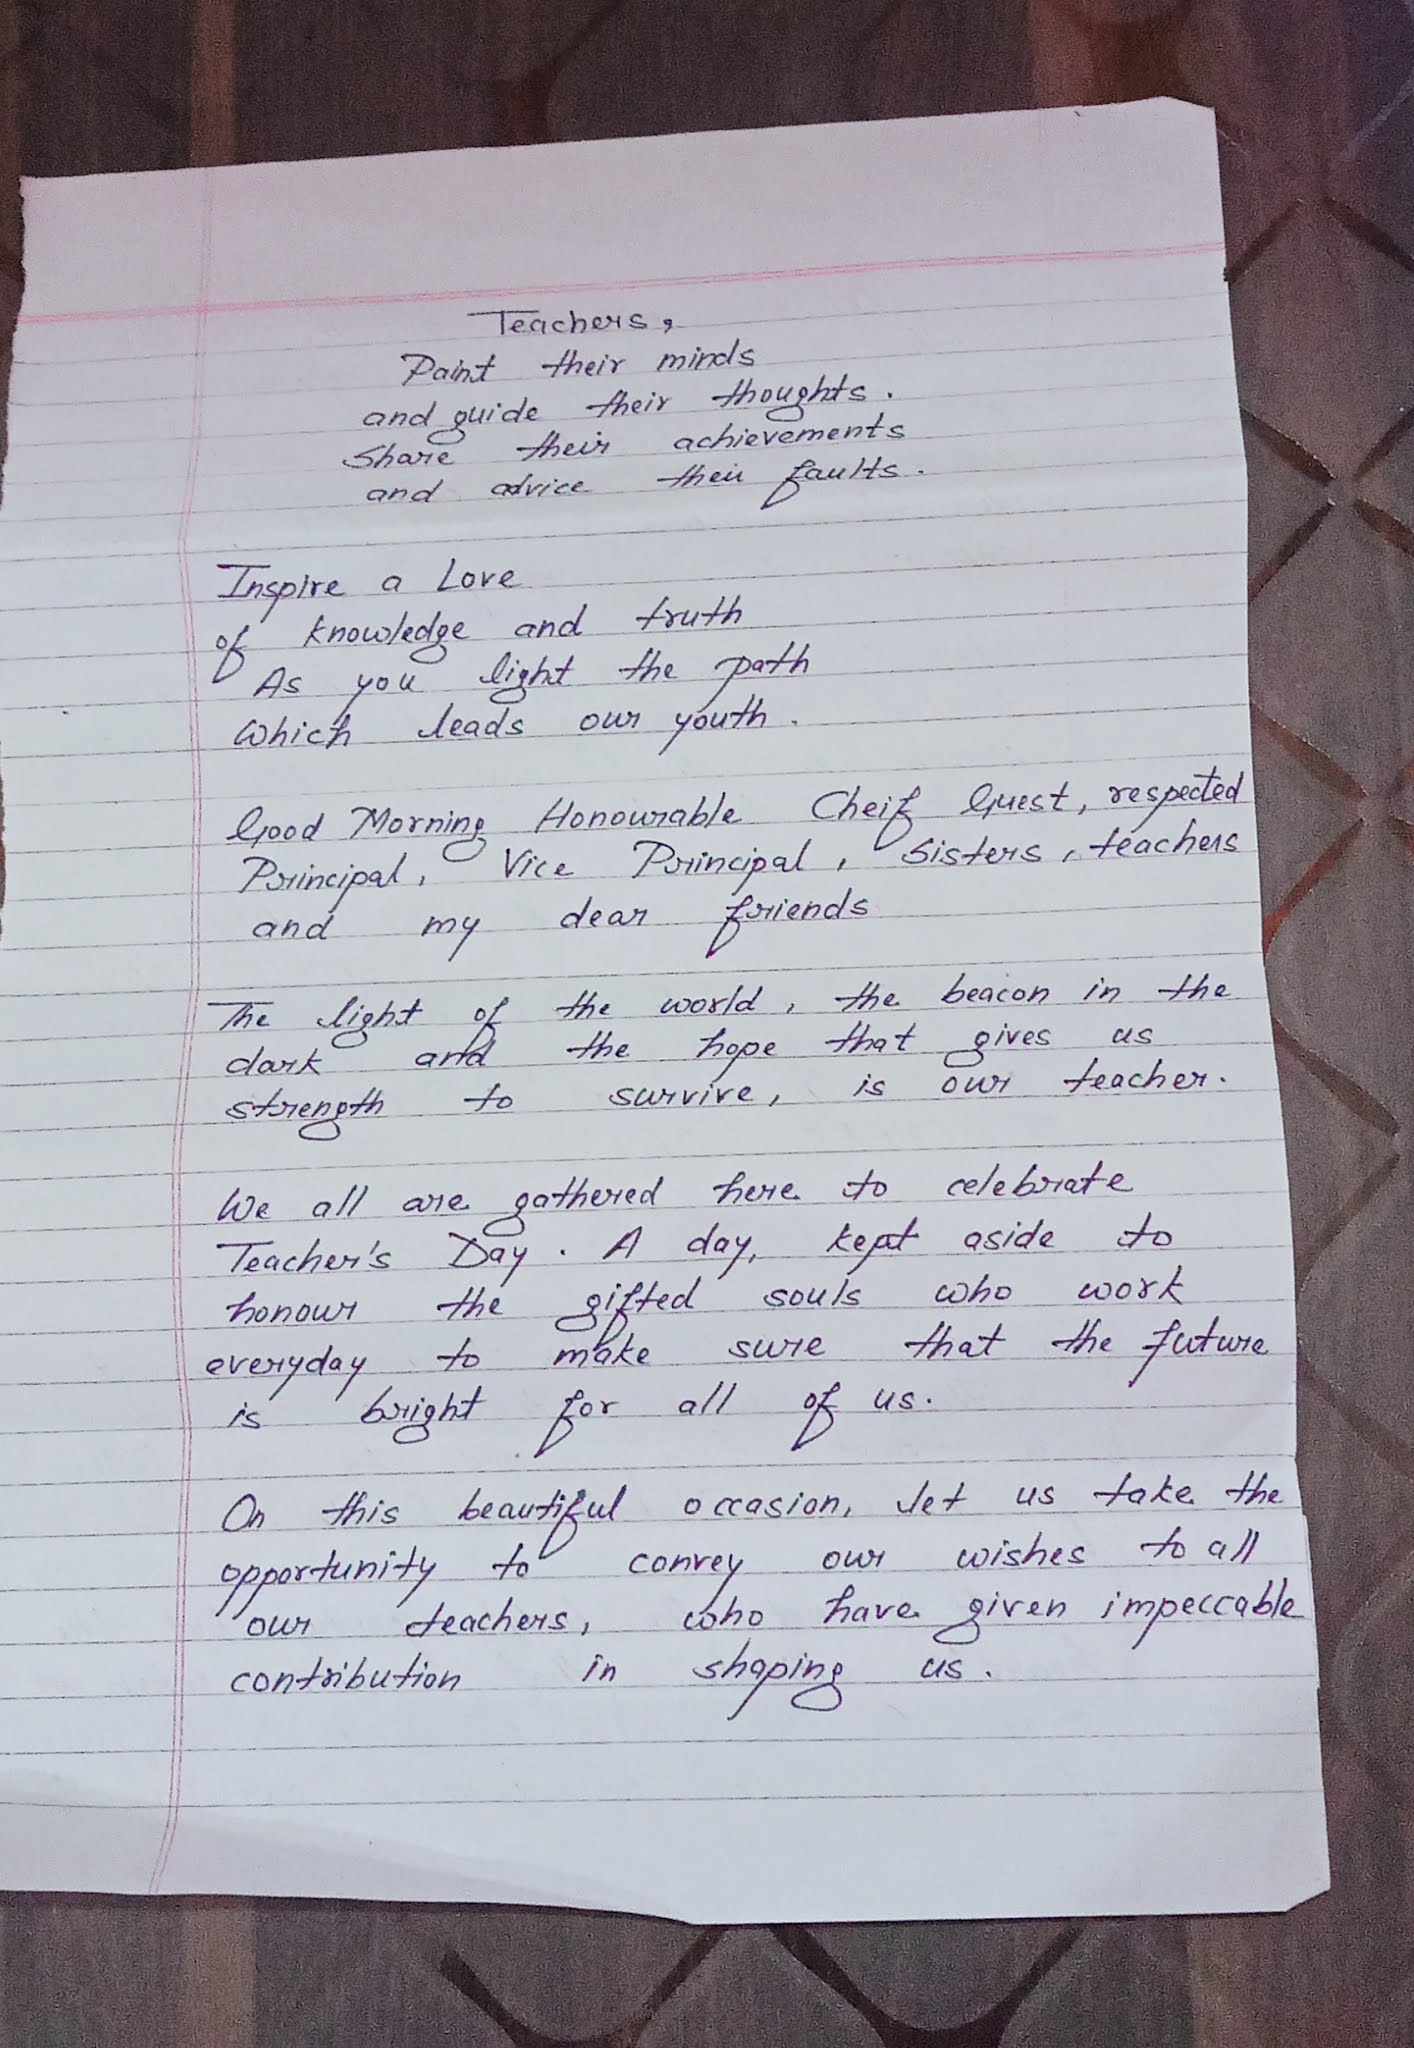 Teachers,
Paint their minds
and guide their thoughts.
Share their achievements
and advice their faults.
Inspire a Love
of knowledge and truth
As you light the path
Which leads our youth.
Good Morning Honourable Cheif Guest, respected
Principal, Vice Principal, Sisters, teachers
and my dear friends
The light of the world, the beacon in the
dark and the hope that gives us
strength to survive, is our teacher.
We all are gathered here to celebrate
Teacher's Day. A day, kept aside to
honour the gifted souls who work
everyday to make sure that the future
is bright for all of us.
On this beautiful occasion, let us take the
opportunity to convey our wishes to all
our teachers, who have given impeccable
contribution in shaping us.